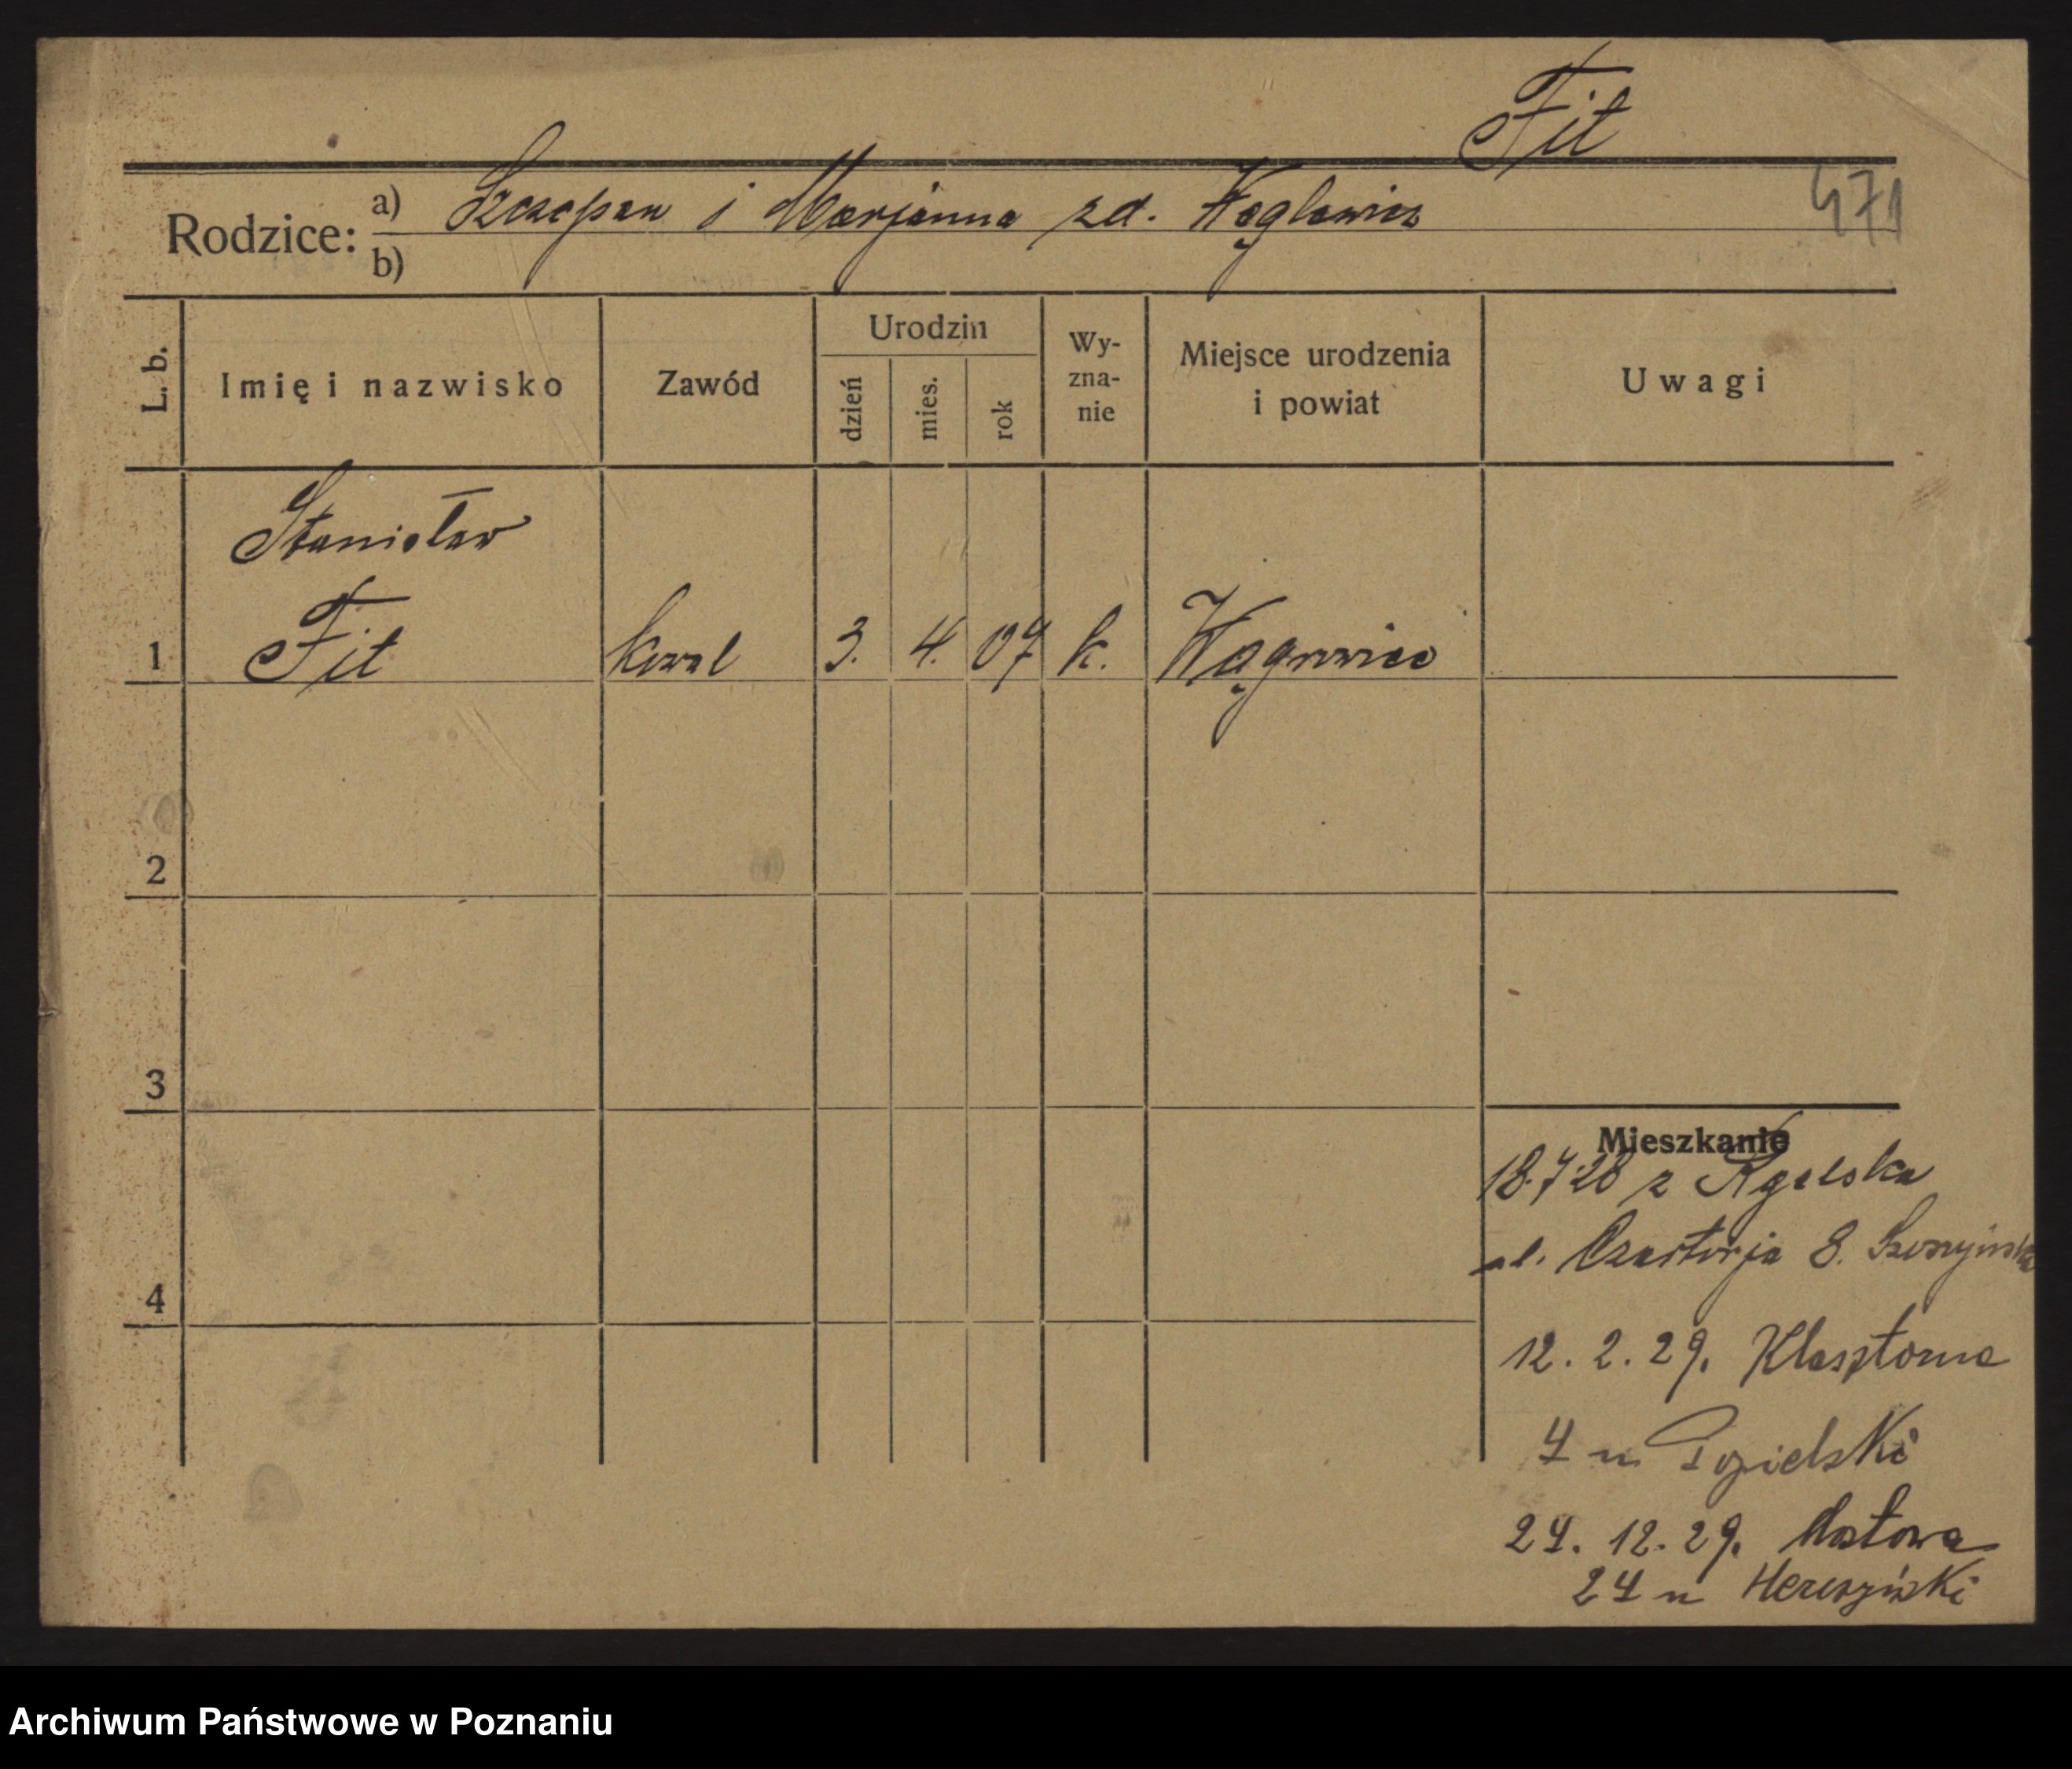 Fit
471
Rodzice: a) Szczepan i Marjanna zd. Węglewicz
b)
L. b. Imię i nazwisko Zawód Urodzin dzień mies. rok Wy-zna-nie Miejsce urodzenia i powiat Uwagi
Stanisław
1 Fit kowal 3. 4. 07 k. Wągrowiec
2
3
Mieszkanie
18.7.28 z Rgielska
ul. Czartorja 8.
4
12. 2. 29. Klasztorna
7 u
24. 12. 29. Mostowa
24 u
Archiwum Państwowe w Poznaniu